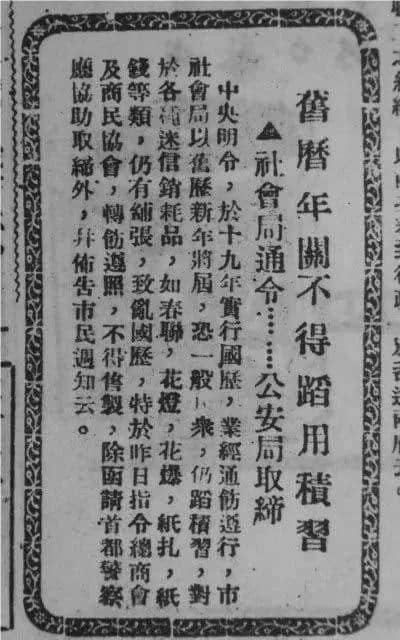 舊曆年關不得蹈用積習
▲社會局通令………公安局取締
中央明令，於十九年實行國歷，業經通飭遵行，市
社會局以舊歷新年將屆，恐一般民衆，仍蹈積習，對
於各種迷信銷耗品，如春聯，花燈，花爆，紙扎，紙
錢等類，仍有鋪張，致亂國歷，特於昨日指令總商會
及商民協會，轉飭遵照，不得售製，除函請首都警察
廳協助取締外，幷佈告市民週知云。